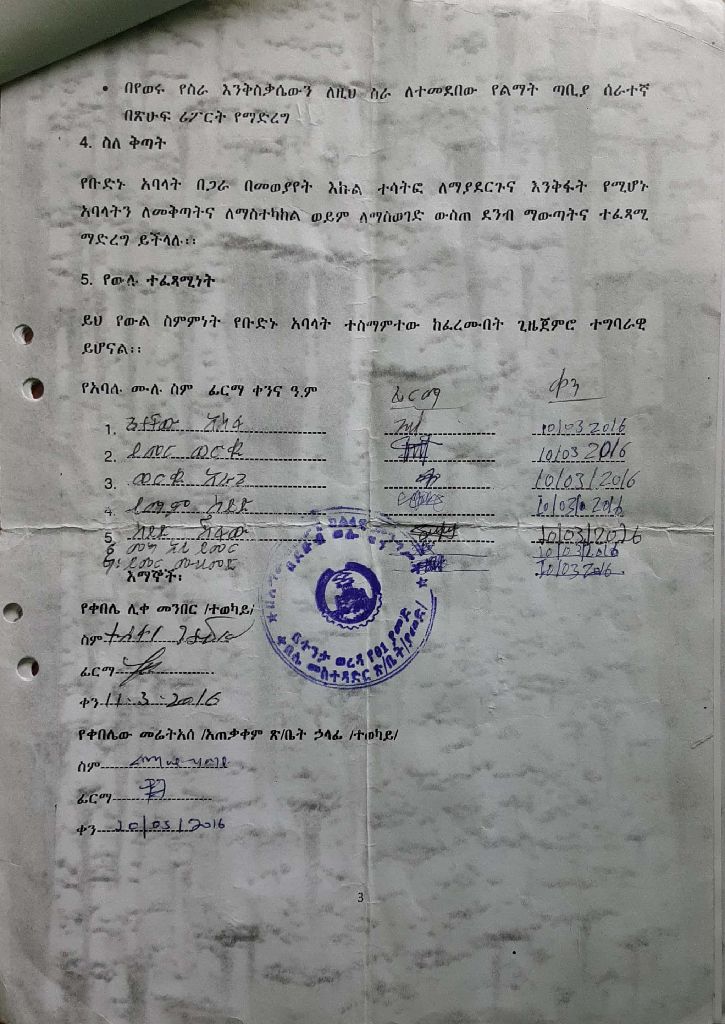 • በየወሩ የስራ እንቅስቃሴውን ለዚህ ስራ ለተመደበው የልማት ጣቢያ ሰራተኛ
በጽሁፍ ሪፖርት የማድረግ
4. ስለ ቅጣት
የቡድኑ አባላት በጋራ በመወያየት እኩል ተሳትፎ ለማያደርጉና እንቅፋት የሚሆኑ
አባላትን ለመቅጣትና ለማስተካከል ወይም ለማስወገድ ውስጠ ደንብ ማውጣትና ተፈጻሚ
ማድረግ ይችላሉ፡፡
5. የውሉ ተፈጻሚነት
ይህ የውል ስምምነት የቡድኑ አባላት ተስማምተው ከፈረሙበት ጊዜጀምሮ ተግባራዊ
ይሆናል፡፡
የአባሉ ሙሉ ስም ፊርማ ቀንና ዓ.ም ፊርማ ቀን
1. 10/03 2016
2. ይመር ወርቁ 10/03 2016
3. ወርቁ 10/03/2016
4. ይማም 10/03/2016
5 10/03/2016
6 ይመር 10/03/2016
7. ይመር መሀመድ 10/03 2016
እማኞች፡
የቀበሌ ሊቀ መንበር /ተወካይ/
ስም
ፊርማ
ቀን 11.3.2016
የቀበሌው መሬትአስ /አጠቃቀም ጽ/ቤት ኃላፊ /ተወካይ/
ስም
ፊርማ
ቀን 10/03/2016
በደቡብ ወሎ ዞን
ወረዳ የ01 ያመድ
ቀበሌ መስተዳድር ጽ/ቤት
3